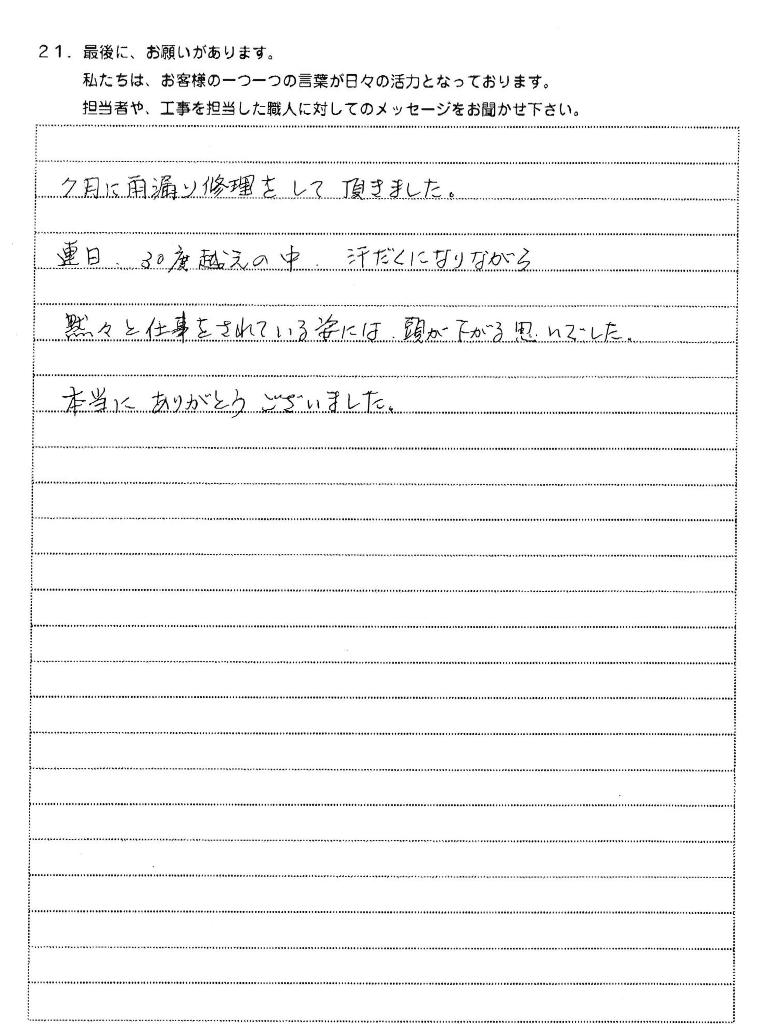 21．最後に、お願いがあります。
私たちは、お客様の一つ一つの言葉が日々の活力となっております。
担当者や、工事を担当した職人に対してのメッセージをお聞かせ下さい。
7月に雨漏り修理をして頂きました。
連日、30度越えの中、汗だくになりながら
黙々と仕事をされている姿には、頭が下がる思いでした。
本当にありがとうございました。